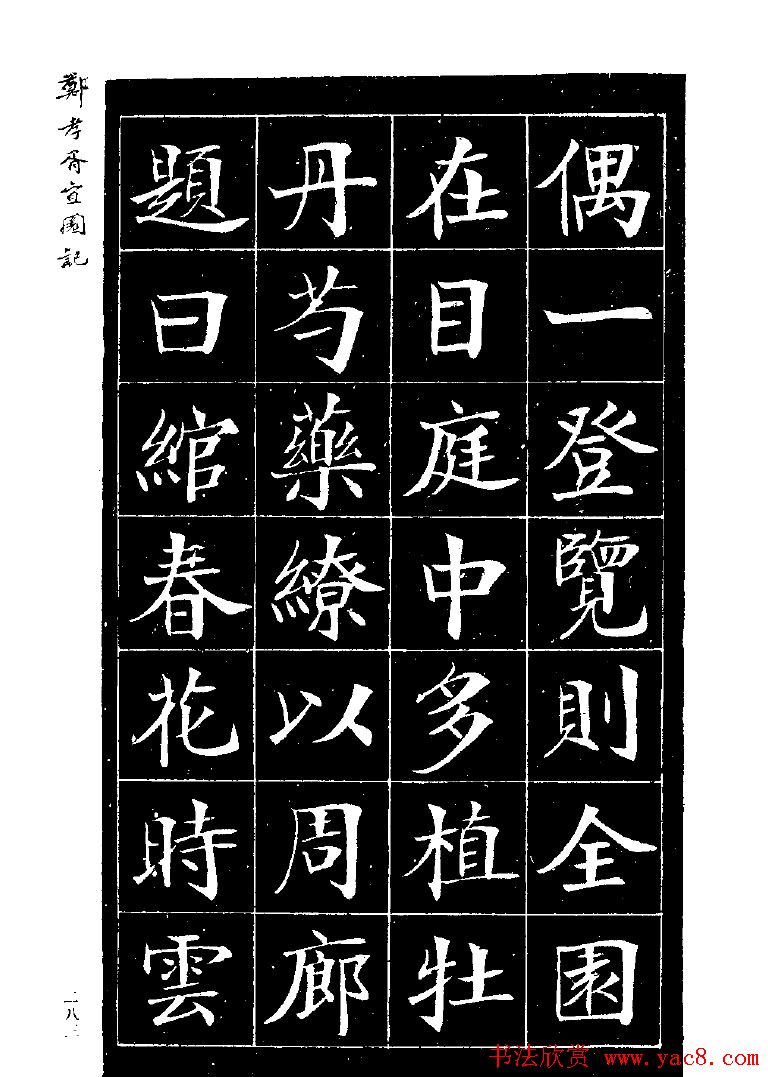 偶一登覽則全園
在目庭中多植牡
丹芍藥繚以周廊
題曰綰春花時雲
鄭孝胥宜園記
二八三
书法欣赏 www.yac8.com